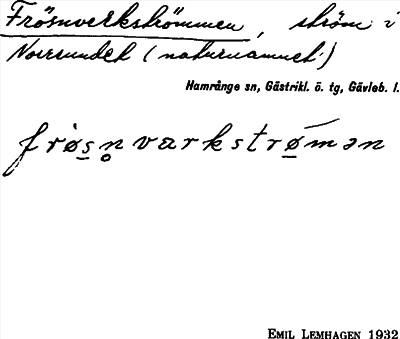 Frösnverkströmmen, ström i
Norrsundet (naturnamnet)
Hamrånge sn, Gästrikl. ö. tg, Gävleb. l.
frøsn̥varkstrømən
EMIL LEMHAGEN 1932